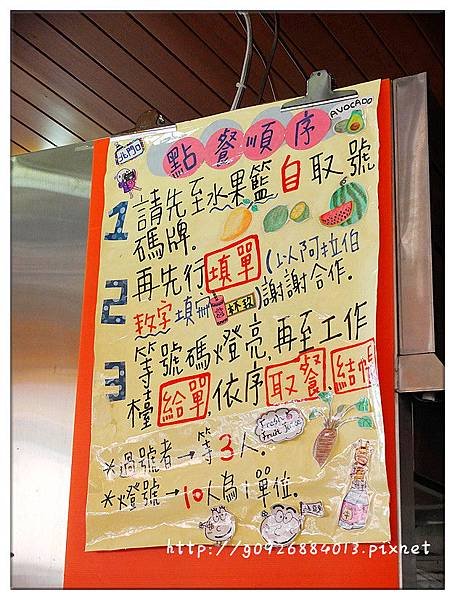 點餐順序
AVOCADO
1 請先至水果籃自取號
碼牌.
2 再先行填單(以阿拉伯
數字填寫杯數)謝謝合作.
3 等號碼燈亮,再至工作
檯給單,依序取餐,結帳
Fresh
Fruit Juice
*過號者→等3人.
*燈號→10人為1單位.
http://g0926884013.pixnet